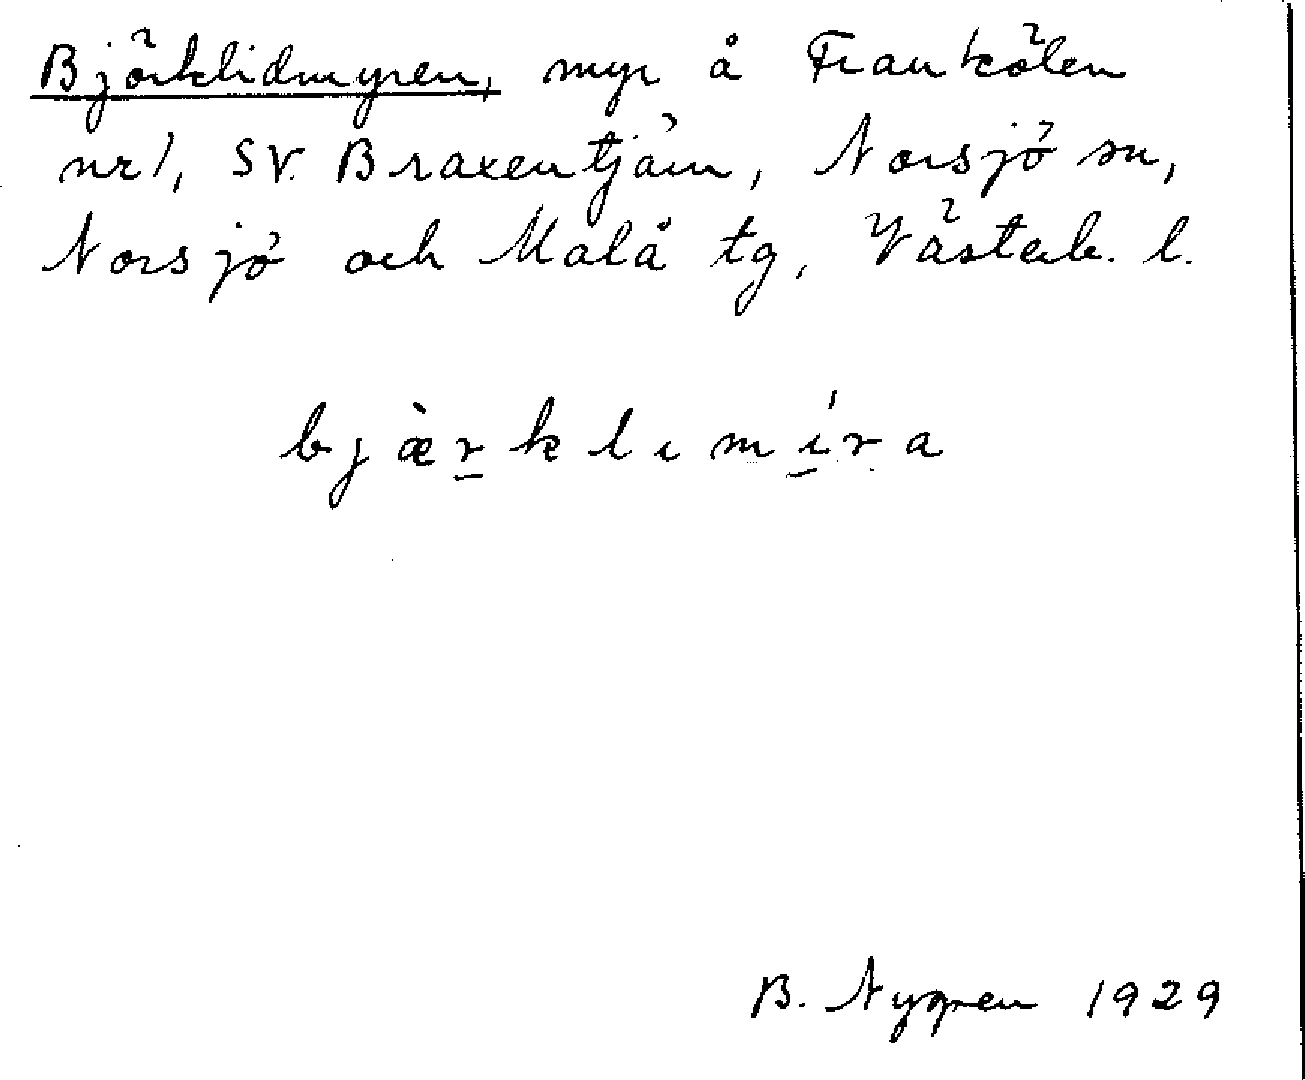 Björklidmyren, myr å Frankölen
nr 1, SV. Braxentjärn, Norsjö sn,
Norsjö och Malå tg, Västerb. l.
bjæ̀r̲klɩmí̲ra
B. Nygren 1929